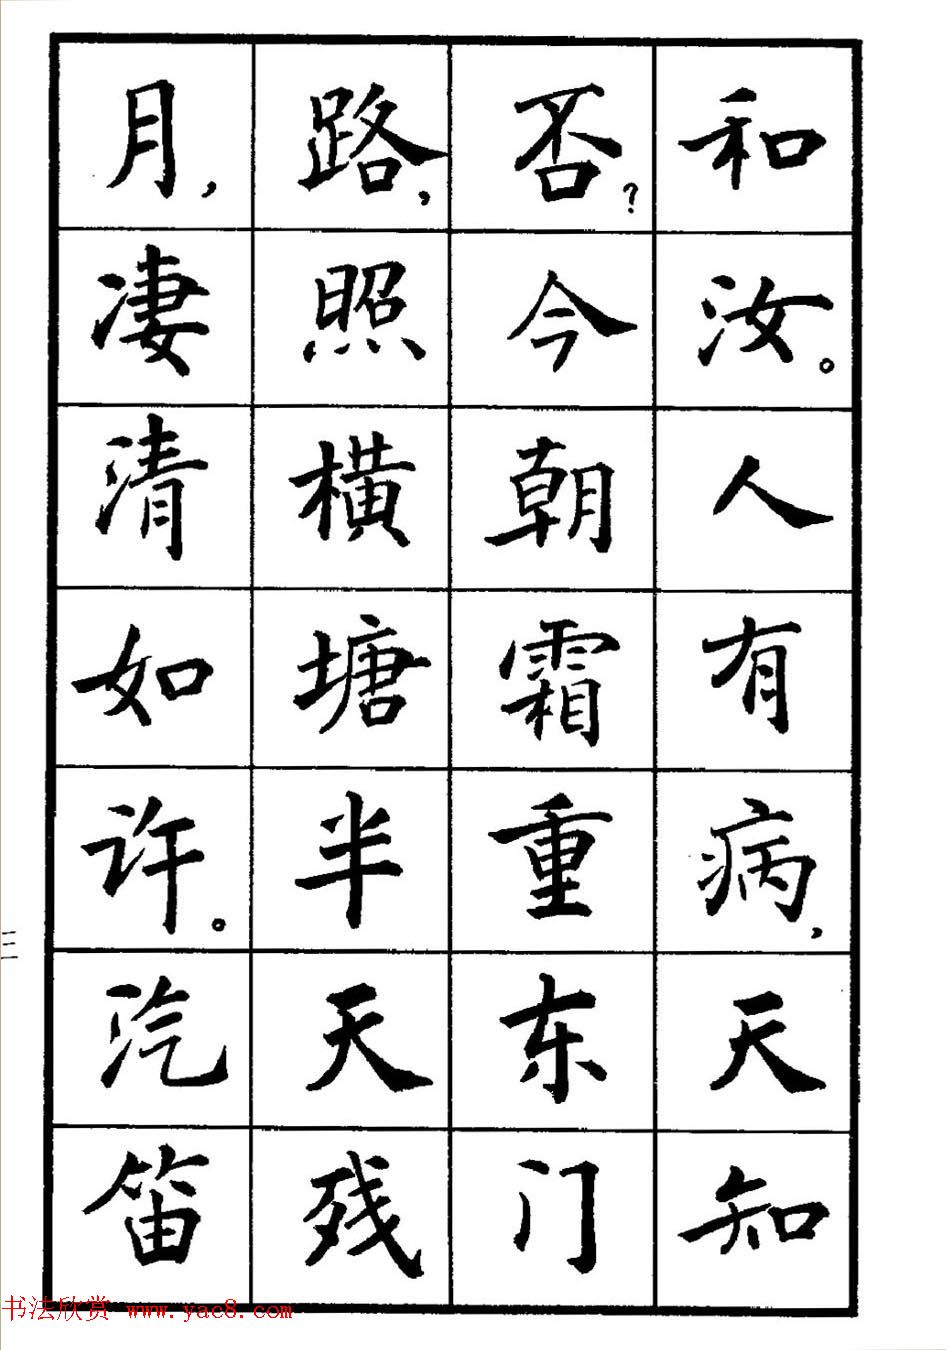 和汝。人有病，天知
否？今朝霜重东门
路，照横塘半天残
月，凄清如许。汽笛
三
书法欣赏 www.yac8.com